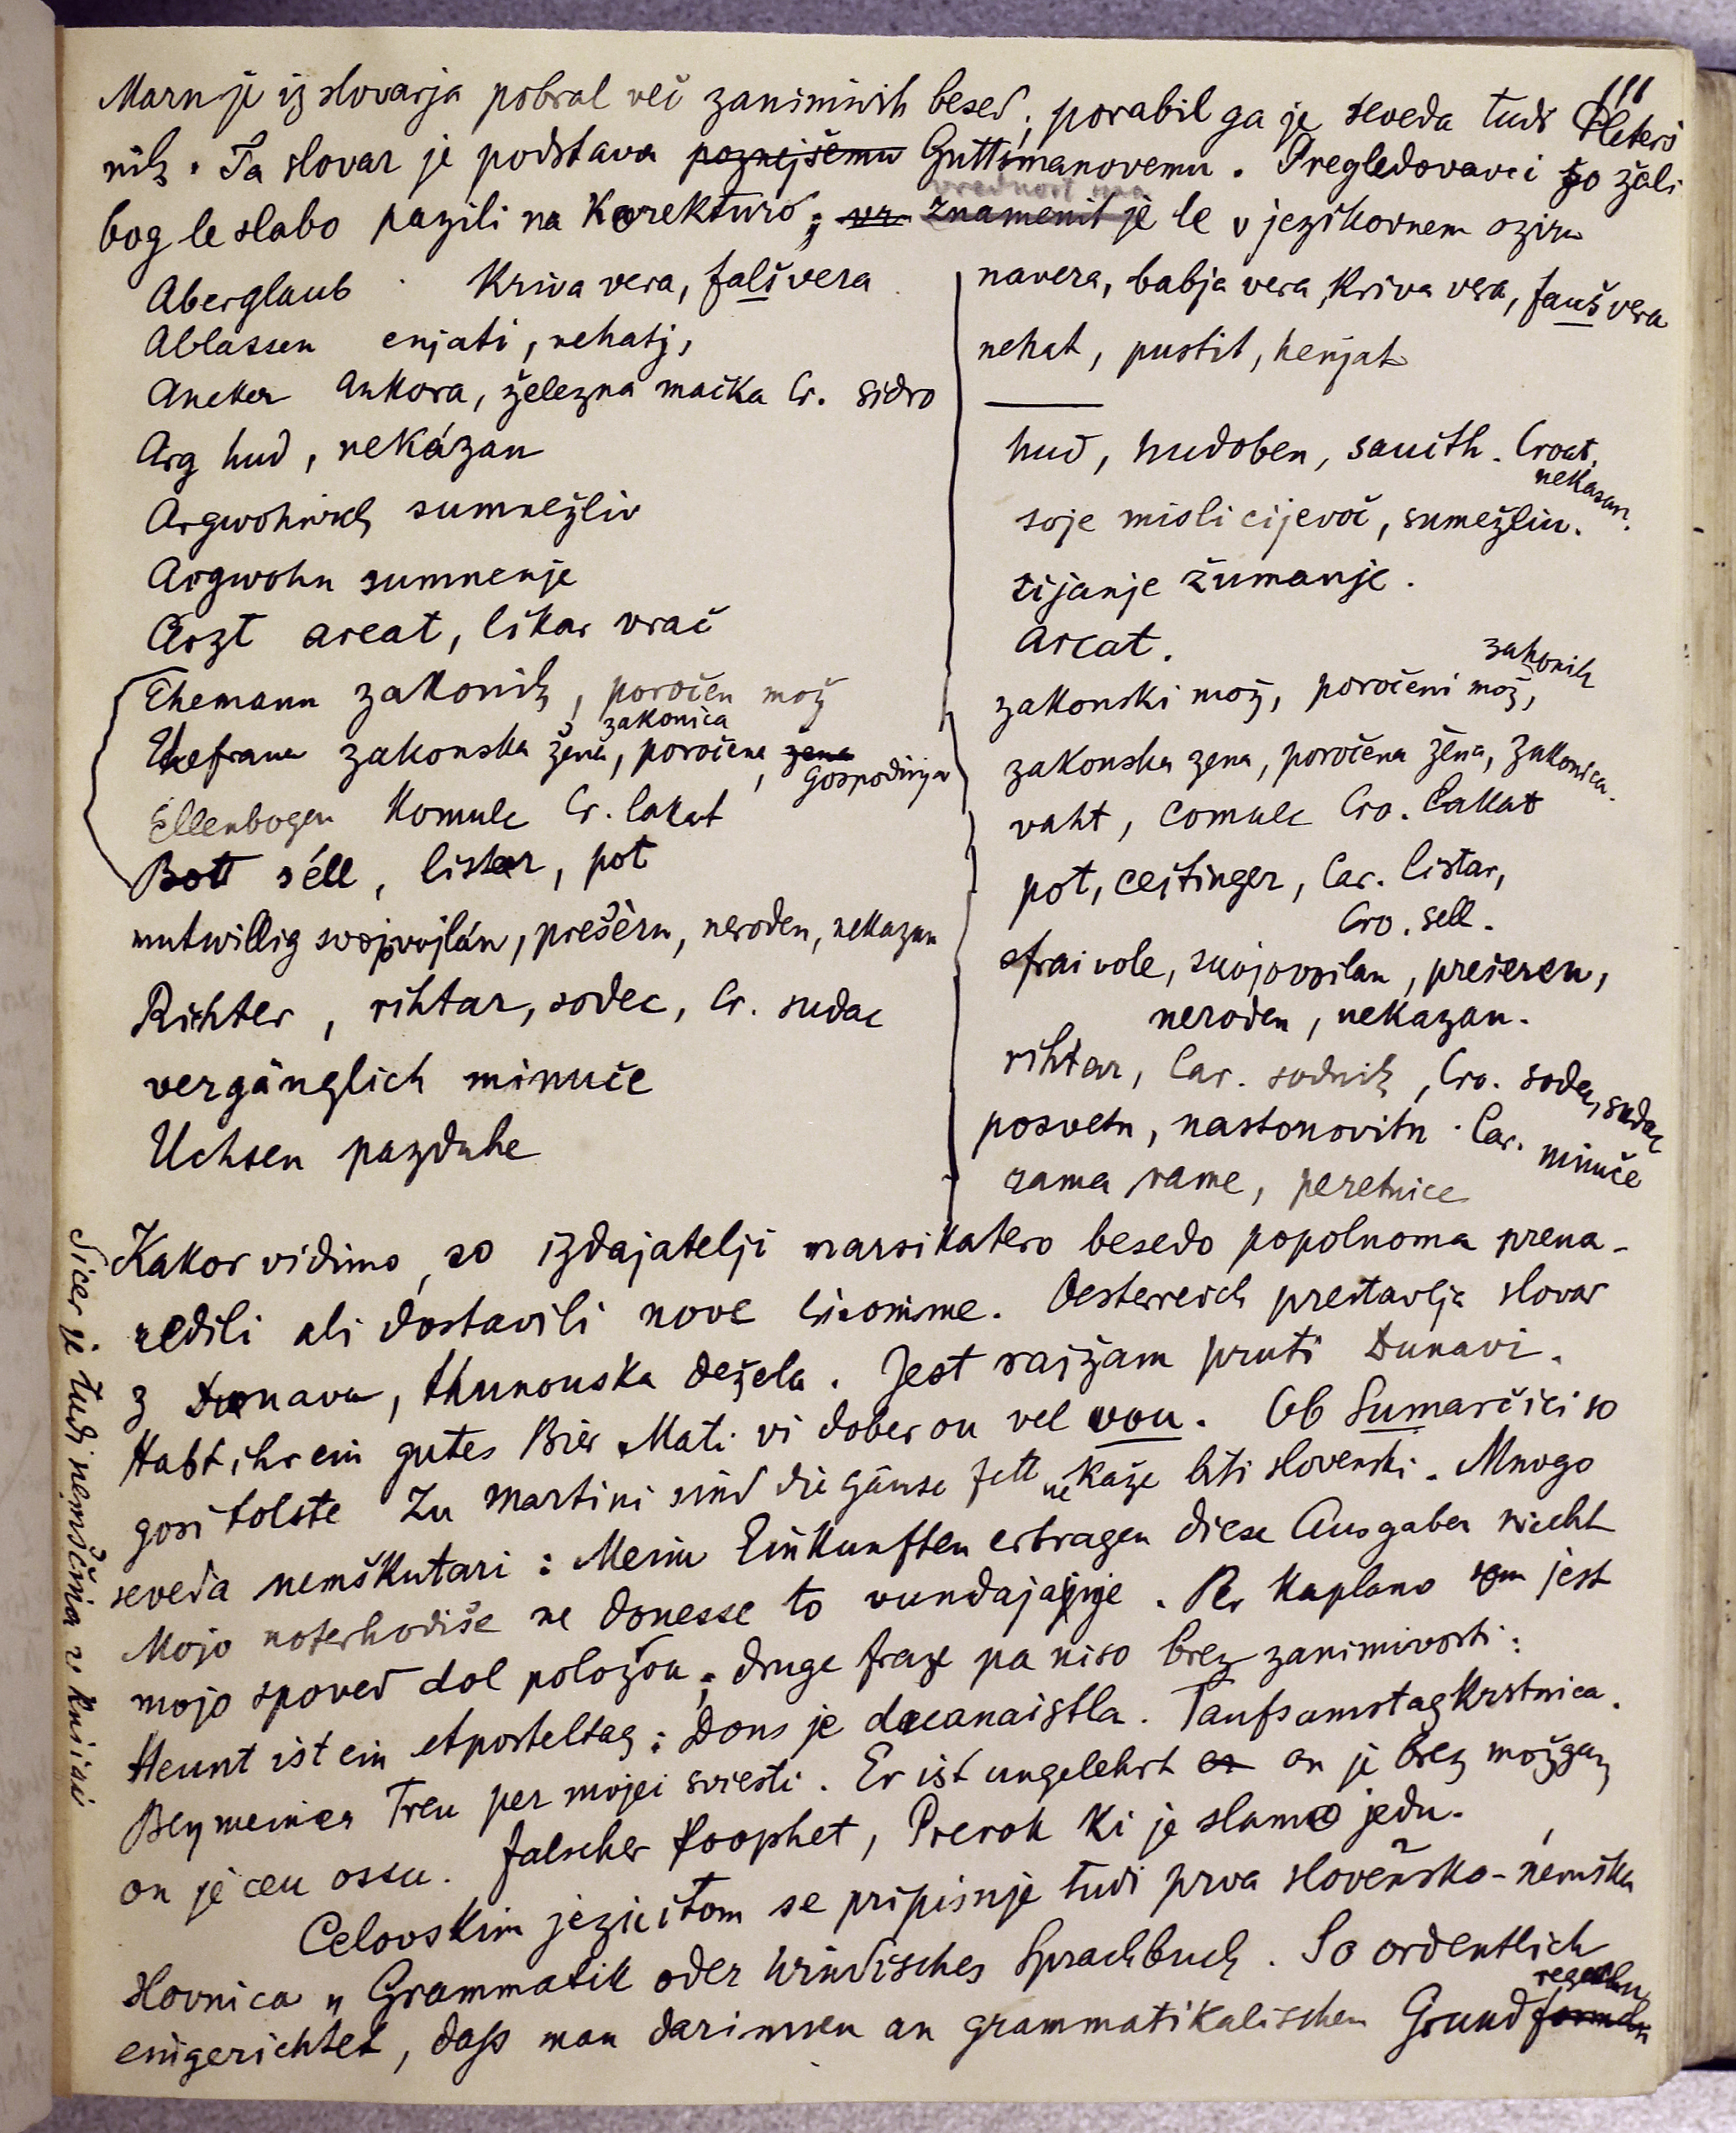 111
Marn je iz slovarja pobral več zanimivih besed; porabil ga je seveda tudi Pleterš
nik. Ta slovar je podstava poznejšemu Guttsmanovemu. Pregledovavci so žali
vrednost ima
bog le slabo pazili na korekturo; vr znamenit je le v jezikovnem oziru
Aberglaub kriva vera, falš vera
navera, babja vera, kriva vera, fauš vera
Ablassen enjati, nehati,
nehat, pustit, henjat
Ancker ankora, železna mačka Cr. sidro
Arg hud, nekázan
hud, hudoben, saucth. Croat.
nekasan.
Argwohnisch sumnežliv
soje misli cijevoč, sumežliu.
Argwohn sumnenje
tijanje žumanje.
Arzt arcat, likar vrač
arcat.
Ehemann zakonik, poročen mož
zakonski mož, poročeni mož, zakonik
Ehefrau zakonska žena, zakonica poročena, žena Gospodinja
zakonska zena, poročena žena, zakonica.
Ellenbogen komulc Cr. lakat
vaht, comulc Cro. lakat
Bott séll, listar, pot
pot, cejtinger, Car. listar,
Cro. sell.
mutwillig svojvojlán, prešèrn, neroden, nekazan
frai vole, svojovoilan, prešeren,
neroden, nekazan.
Richter, rihtar, sodec, Cr. sudac
rihtar, Car. sodnik, Cro. sodec, sudac
vergänglich minuče
posvetn, nastonovitn. Car. minuče
Uchsen pazduhe
rama rame, peretnice
Kakor vidimo, so izdajatelji marsikatero besedo popolnoma prena-
redili ali dostavili nove sinonime. Oesterreich prestavlja slovar
z Dunava, thunouska dežela. Jest rajžam pruti Dunavi.
Habt ihr ein gutes Bier Mati vi dober ou vel vou. Ob Sumarčici so
gosi tolste Zu Martini sind die gänse fett ne kaže biti slovenski. Mnogo
seveda nemškutari: Meine Einkunften ertragen diese Ausgaben niecht
Mojo noterhodiše ne donesse to vundajajnje. Per kaplano sem jest
mojo spoved dol položou; druge fraze pa niso brez zanimivosti:
Heunt ist ein Aposteltag: Dons je dvanaistla. Taufsamstag krstnica.
Bey meiner Treu per mojei sviesti. Er ist ungelehrt on je brez možgan
on je ceu ossu. falscher Prophet, Prerok ki je slamo jedu.
Celovskim jezuitom se pripisuje tudi prva slovensko-nemška
slovnica „Grammatik oder windisches Sprachbuch. So ordentlich
eingerichtet, daß man darinnen an grammatikalischen Grundformeln
regeln
Sicer je tudi nemščina v